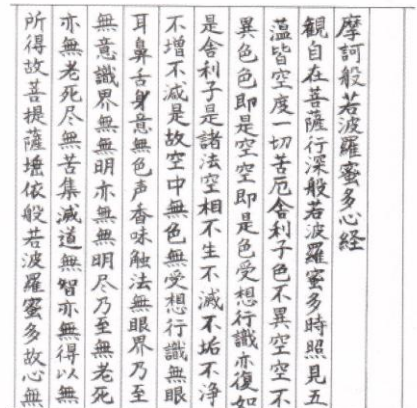 摩訶般若波羅蜜多心経
観自在菩薩行深般若波羅蜜多時照見五
薀皆空度一切苦厄舎利子色不異空空不
異色色即是空空即是色受想行識亦復如
是舎利子是諸法空相不生不滅不垢不浄
不増不減是故空中無色無受想行識無眼
耳鼻舌身意無色声香味触法無眼界乃至
無意識界無無明亦無無明尽乃至無老死
亦無老死尽無苦集滅道無智亦無得以無
所得故菩提薩埵依般若波羅蜜多故心無